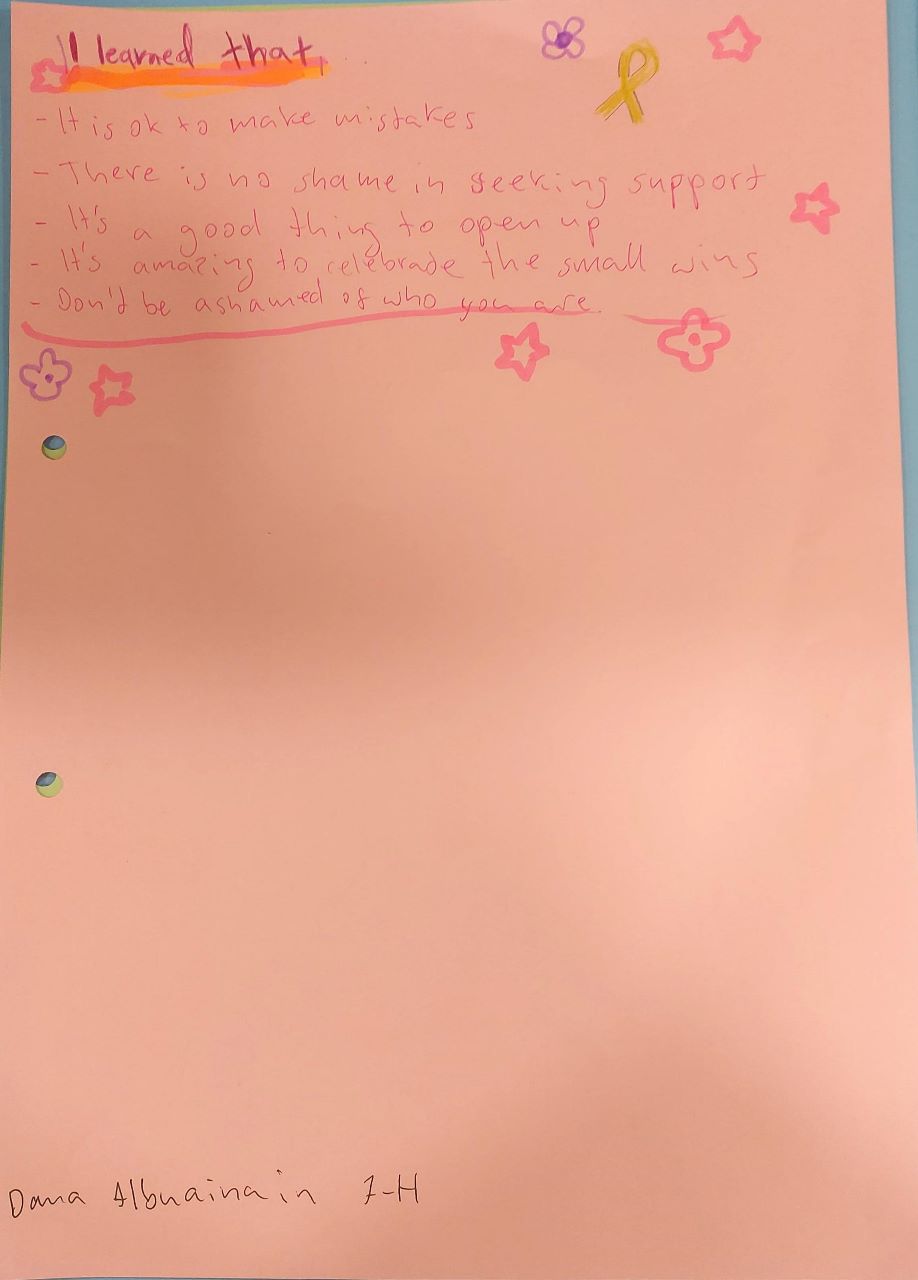 I learned that
- It is ok to make mistakes
- There is no shame in seeking support
- It's a good thing to open up
- It's amazing to celebrade the small wins
- Don't be ashamed of who you are.
Dana Albuainain 7-H